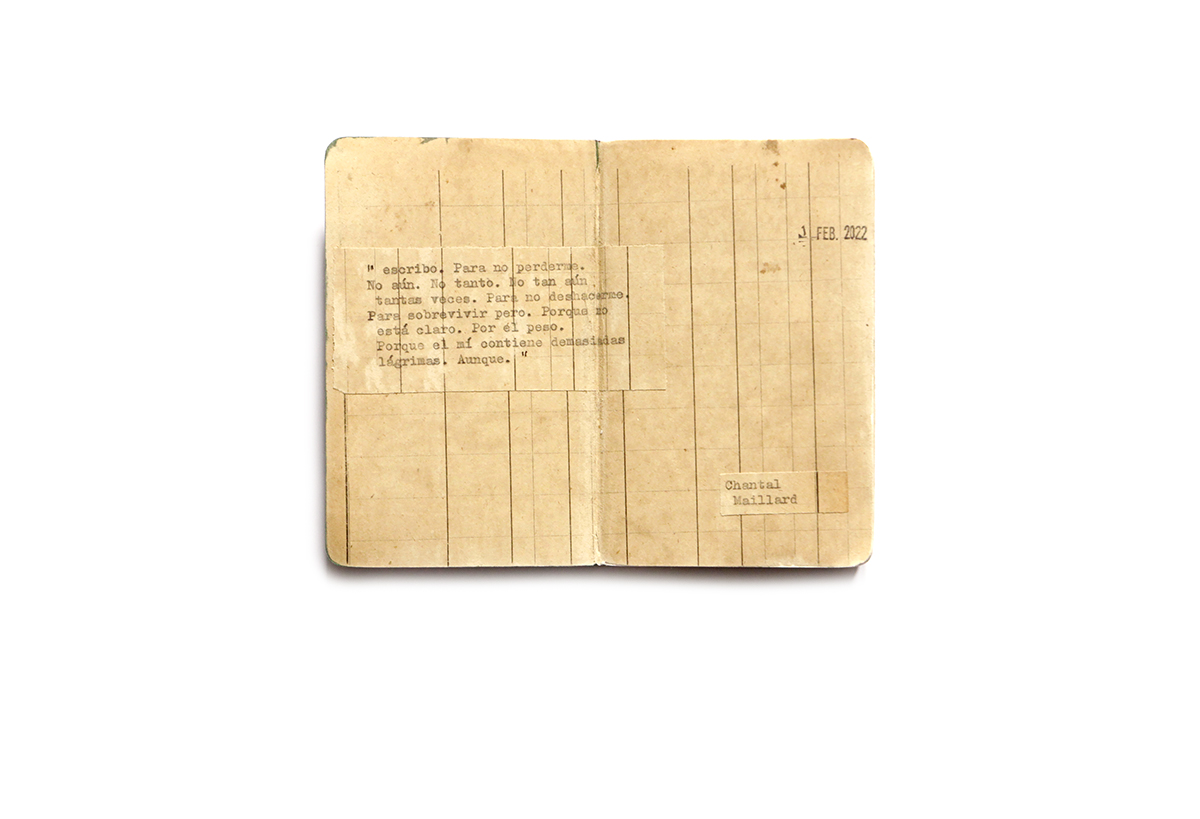 " escribo. Para no perderme.
No aún. No tanto. No tan aún
tantas veces. Para no deshacerme.
Para sobrevivir pero. Porque no
está claro. Por él peso.
Porque el mí contiene demasiadas
lágrimas. Aunque. "
1 FEB. 2022
Chantal
Maillard